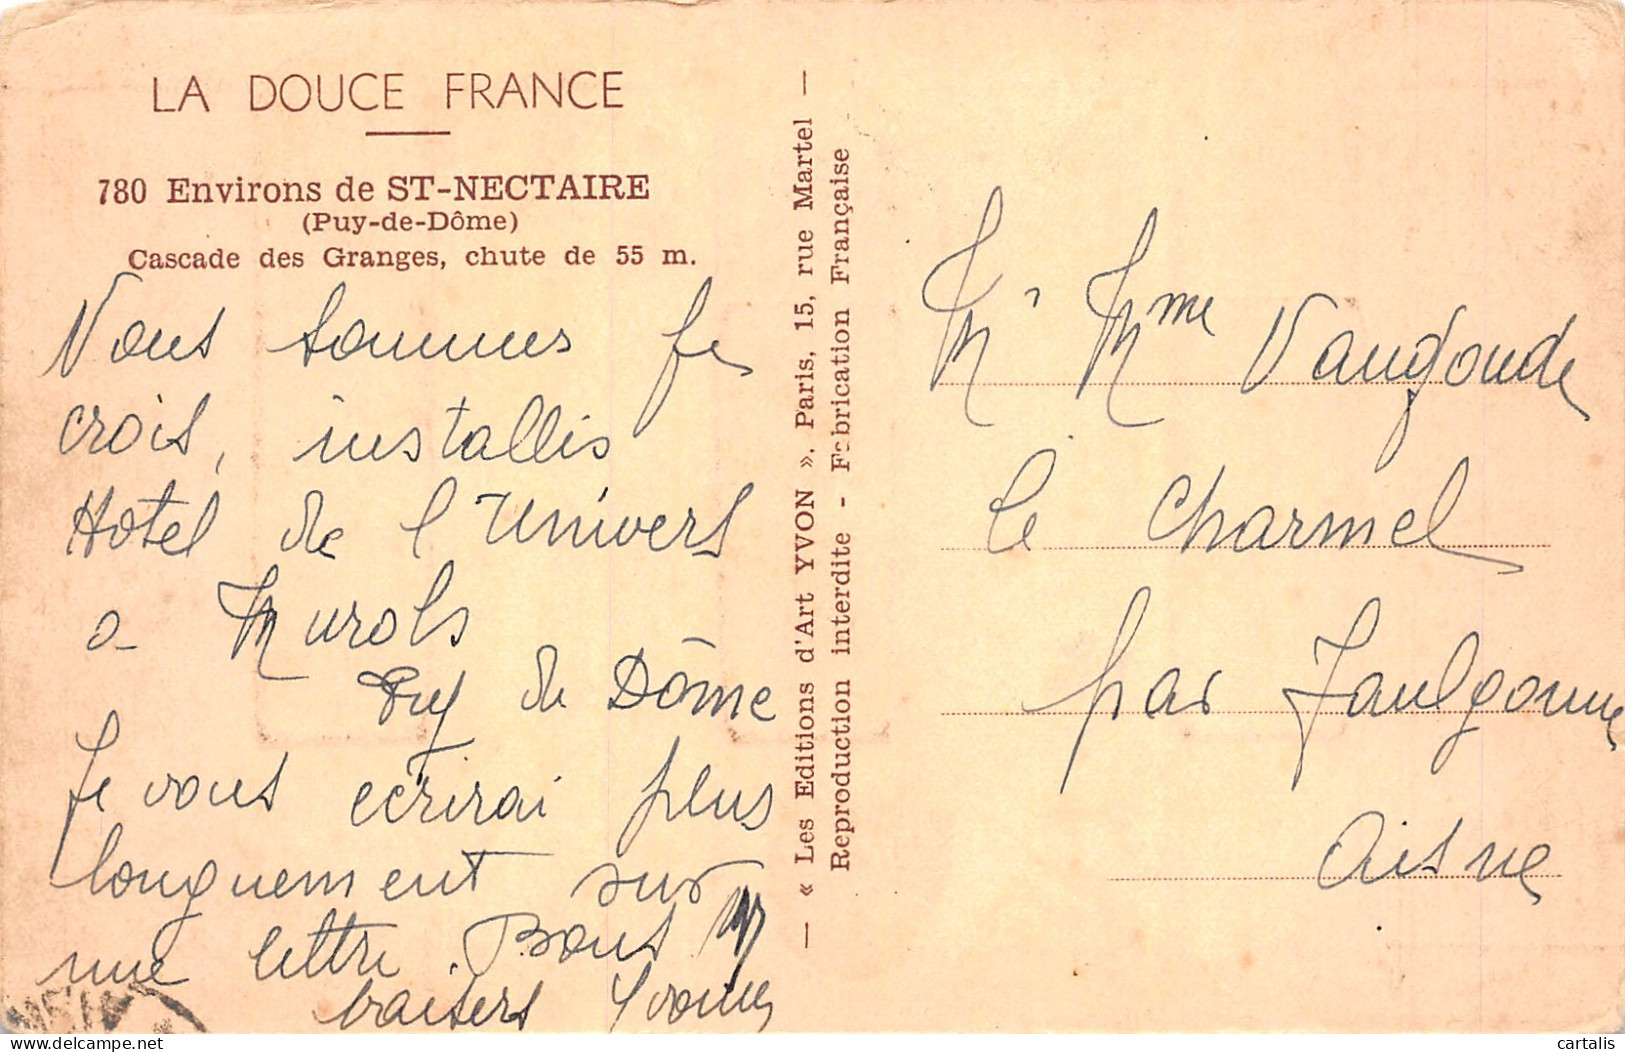 LA DOUCE FRANCE
780 Environs de ST-NECTAIRE
(Puy-de-Dôme)
Cascade des Granges, chute de 55 m.
Nous sommes je
crois, installés
Hotel de l'Univers
a Murols
Puy de Dôme
Je vous écrirai plus
longuement sur
une lettre. Bons
baisers Yvonne
— « Les Editions d'Art YVON ». Paris, 15, rue Martel —
Reproduction interdite - Fabrication Française
Mr Mme
le Charmel
par Jaulgonne
Aisne
delcampe.net
cartalis